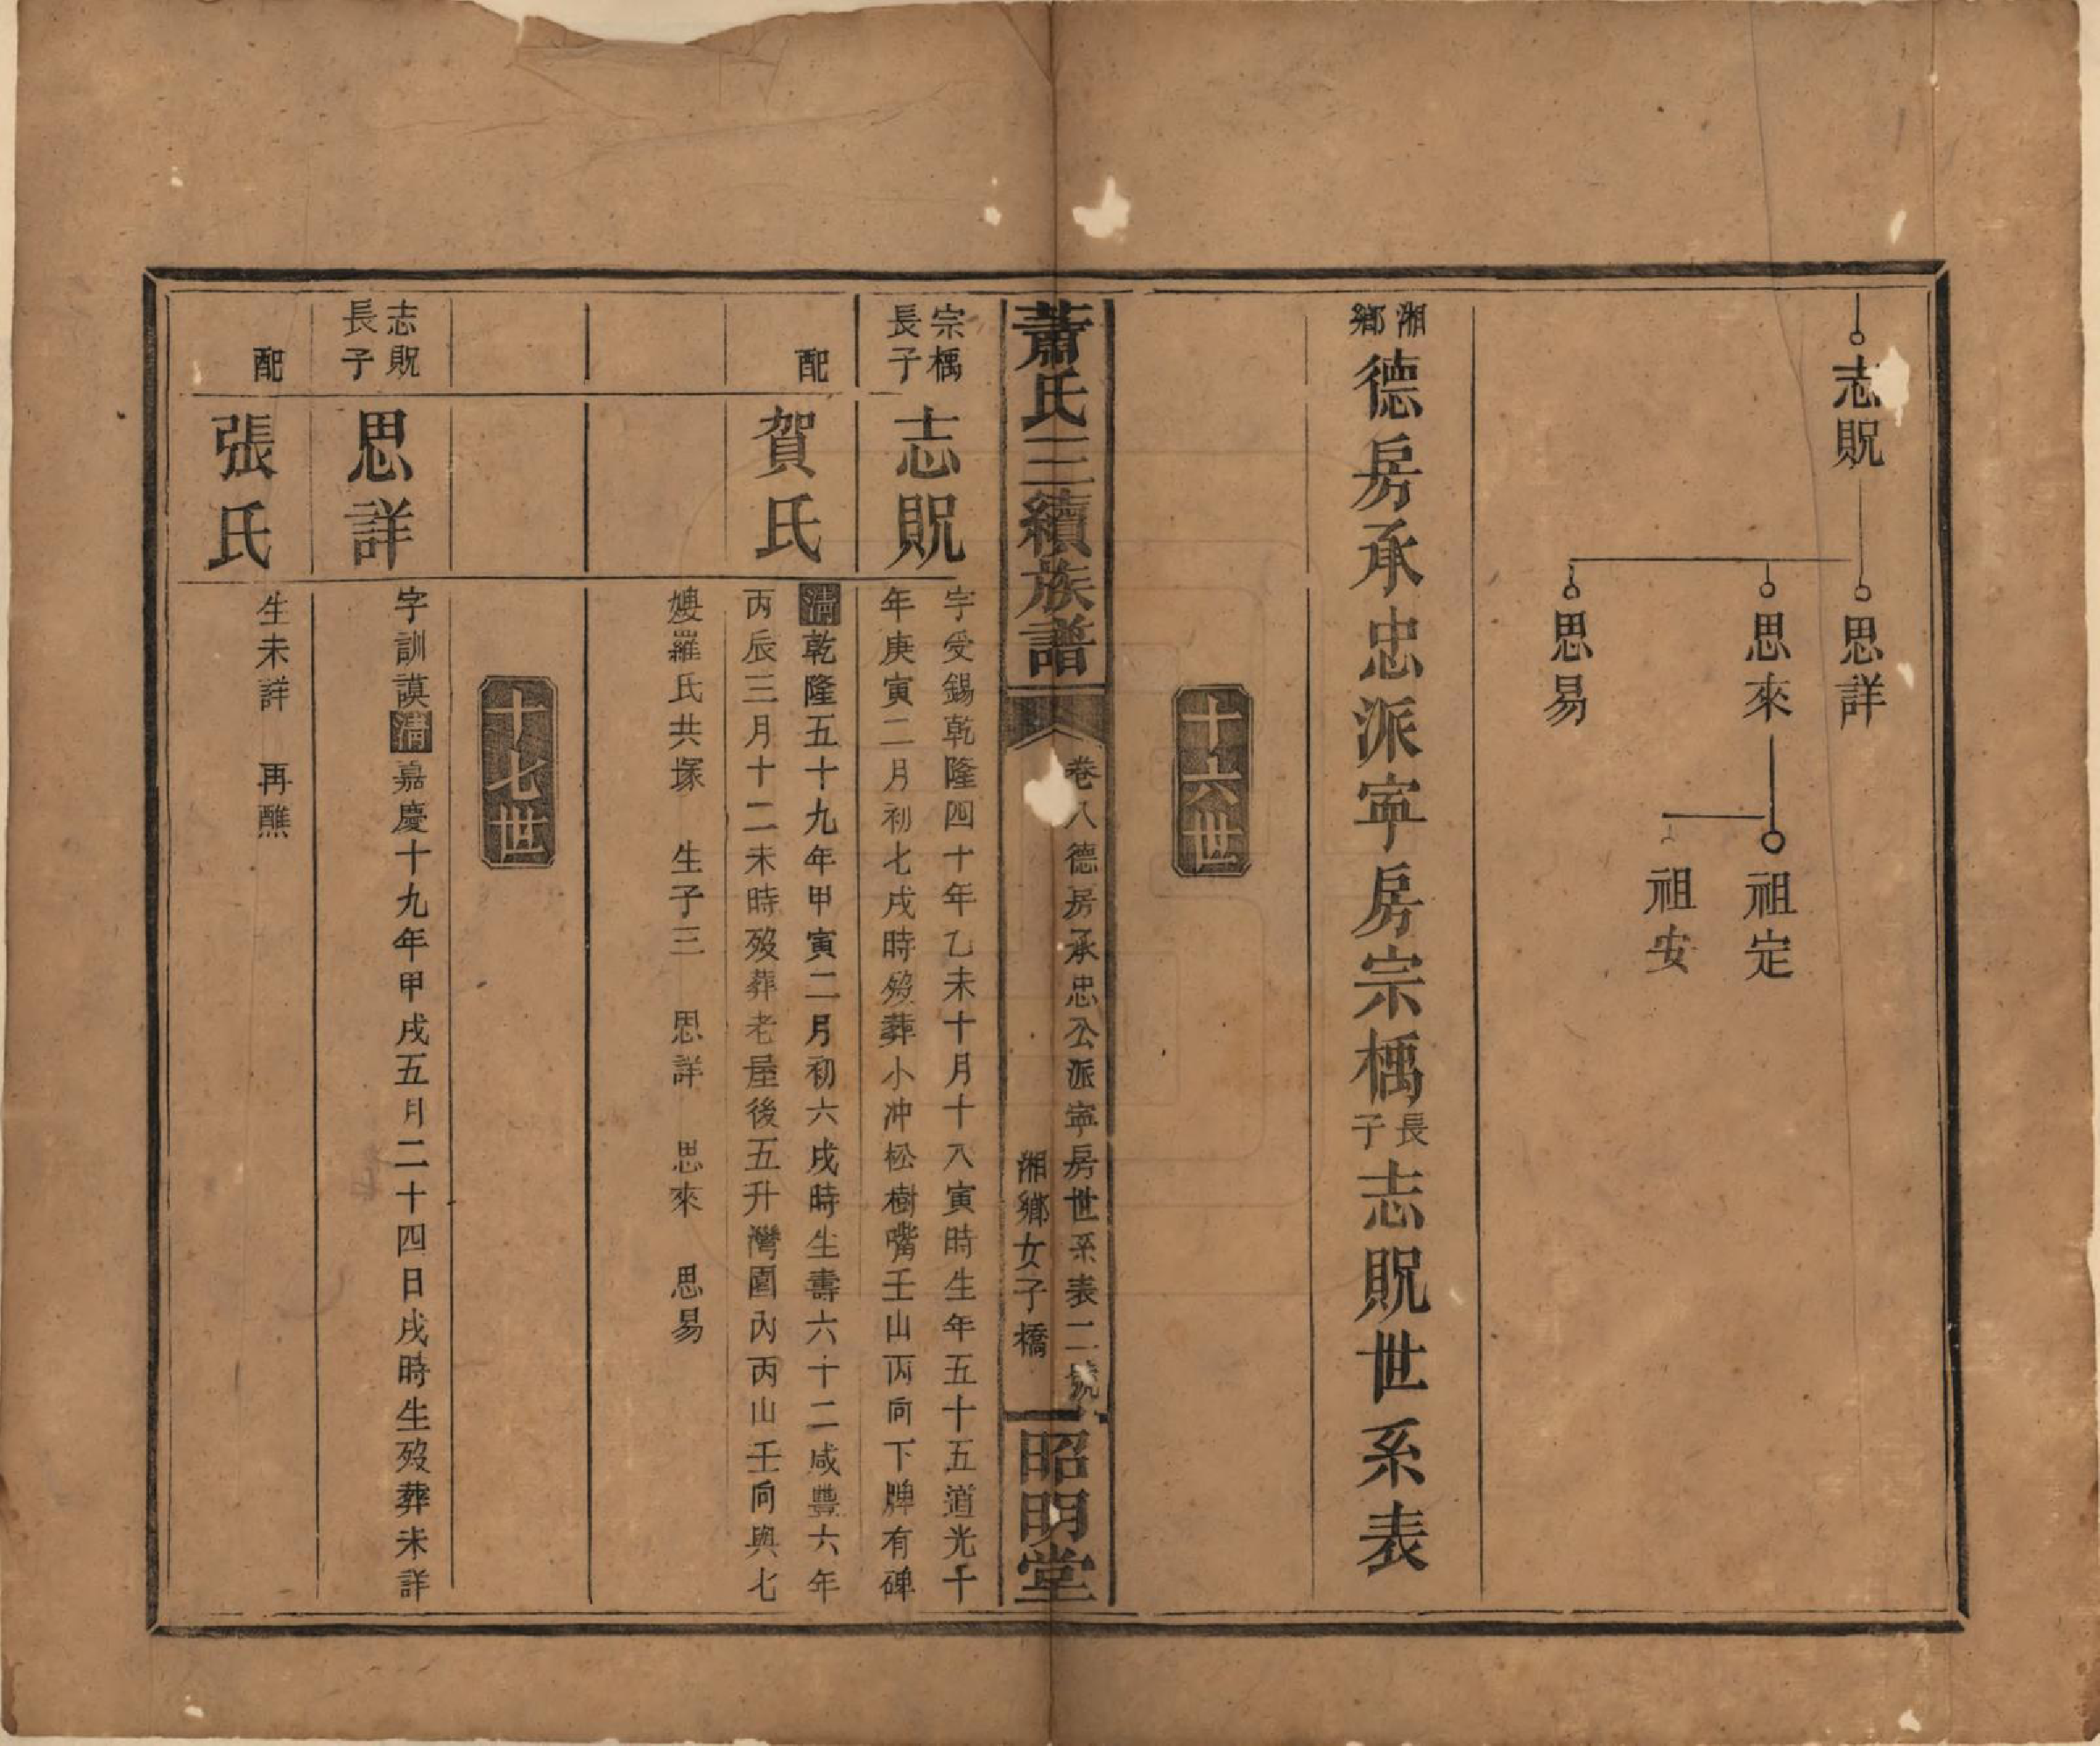 志貺
思詳
思來
思易
祖定
祖安
湘鄉德房承忠派寧房宗楀長子志貺世系表
十六世
蕭氏三續族譜
卷八德房承忠公派寧房世系表二
湘鄉女子橋
昭明堂
宗楀長子
志貺
字受錫乾隆四十年乙未十月十八寅時生年五十五道光十
年庚寅二月初七戌時歿葬小冲松樹嘴壬山丙向下牌有碑
配
賀氏
清乾隆五十九年甲寅二月初六戌時生壽六十二咸豐六年
丙辰三月十二未時歿葬老屋後五升灣園內丙山壬向與七
嫂羅氏共塚 生子三 思詳 思來 思易
十七世
志貺長子
思詳
字訓謨清嘉慶十九年甲戌五月二十四日戌時生歿葬未詳
配
張氏
生未詳 再醮